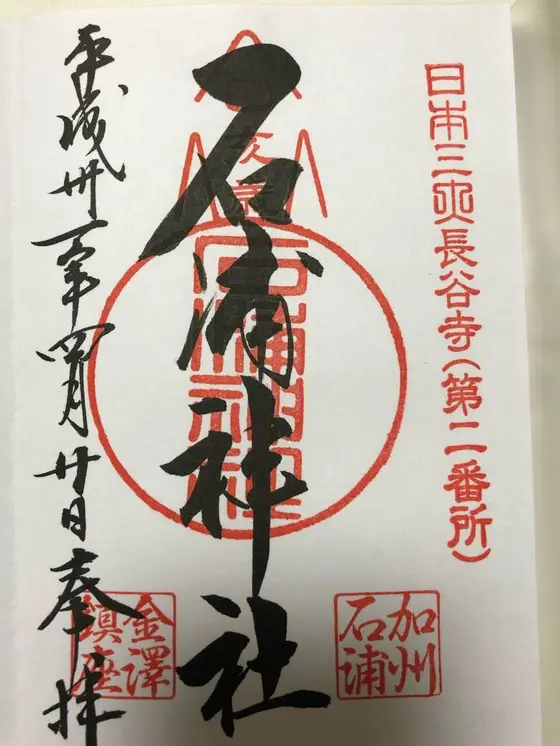 日本三大長谷寺(第二番所)
加州
石浦
石浦神社
石浦神社
金澤
鎮座
平成卅一年四月廿日奉拝